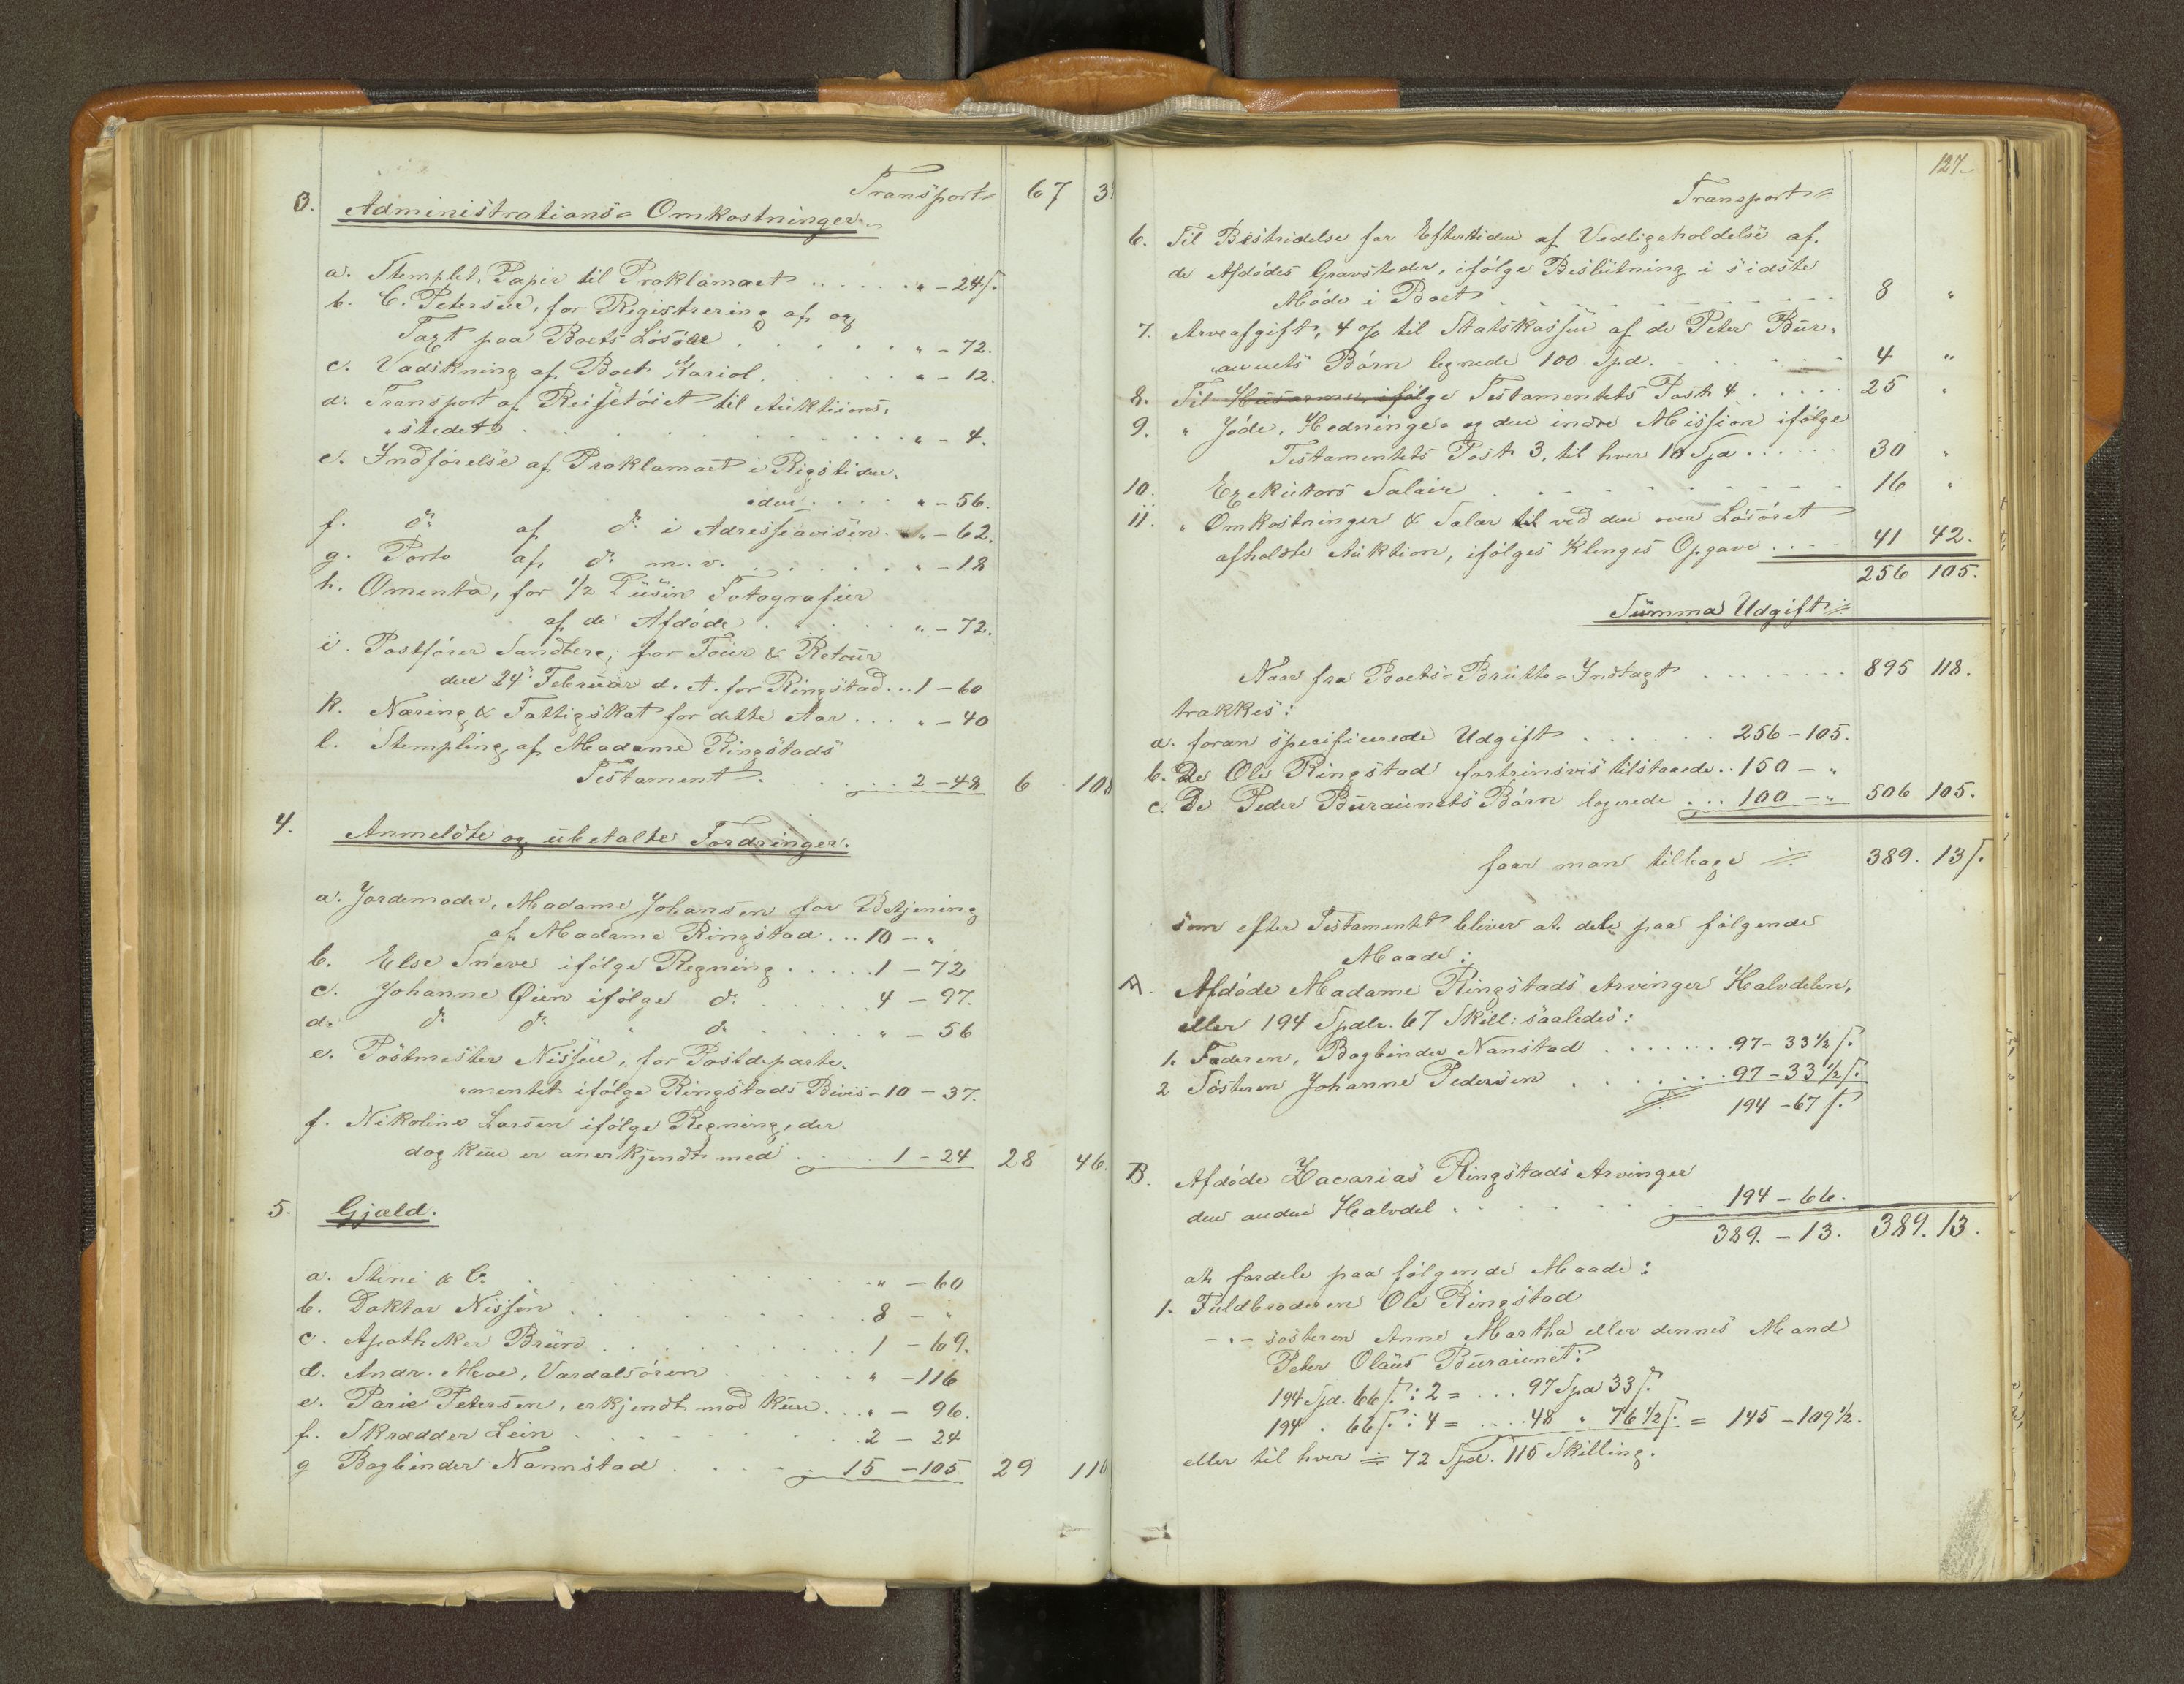 Transport
67 3
3. Administrations=Omkostninger.
a. Stemplet Papir til Proklamaet ..... " - 24 s.
b. C. Petersen, for Registrering af og
Taxt paa Boets Løsøre ..... " - 72.
c. Vadskning af Boets Kariol ..... " - 12.
d. Transport af Reisetøiet til Auktions=
"stedet ..... " - 4.
e. Indførelse af Proklamaet i Rigstiden=
den .... " - 56.
f. do af do i Adresseavisen. " - 62.
g. Porto af do m. v. ..... " - 18
h. Omenta, for 1/2 Dusin Fotografier
af de Afdøde ..... " - 72.
i. Postfører Sandberg, for Tour & Retour
den 24 Februar d. A. for Ringstad... 1 - 60
k. Næring & Fattigskat for dette Aar ... " - 40
l. Stempling af Madame Ringstads
Testament ..... 2 - 48 6 108
4. Anmeldte og ubetalte Fordringer.
a. Jordemoder, Madame Johansen for Betjening
af Madame Ringstad ... 10 - "
b. Else Sneve ifølge Regning ..... 1 - 72
c. Johanne Øien ifølge do ..... 4 - 97.
d. do do " do ..... " - 56
e. Postmester Nissen, for Postdeparte=
"mentet ifølge Ringstads Bevis - 10 - 37.
f. Nikoline Larsen ifølge Regning, der
dog kun er anerkjendt med .... 1 - 24 28 46.
5. Gjæld.
a. Stene & C. ..... " - 60
b. Doktor Nissen ..... 8 - "
c. Apotheker Bruun ..... 1 - 69.
d. Andr. Moe, Vardalsøren ..... " - 116
e. Petersen, erkjendt mod kun ... " - 96.
f. Skrædder Lein ..... 2 - 24
g Bogbinder Nannstad ..... 15 - 105 29 110
127.
Transport
6. Til Bestridelse for Eftertiden af Vedligeholdelse af
de Afdødes Gravsteder, ifølge Beslutning i sidste
Møde i Boet ..... 8 "
7. Arveafgift, 4 % til Statskassen af de Peter Bur=
"aunets Børn legerede 100 Spd. ..... 4 "
8. Til Husarmer, ifølge Testamentets Post 4 ..... 25 "
9. " Jøde, Hedninge= og den indre Mission ifølge
Testamentets Post 3, til hver 10 Spd ..... 30 "
10. Exekutors Salair ..... 16 "
11. " Omkostninger & Salær til ved den over Løsøret
afholdte Auktion, ifølges Klinges Opgave .... 41 42.
256 105.
Summa Udgift
Naar fra Boets=Brutto=Indtægt ..... 895 118.
trækkes:
a. foran specificerede Udgift ..... 256 - 105.
b. De Ole Ringstad fortrinsvis tilstaaede .. 150 - "
c. De Peder Buraunets Børn legerede ... 100 - " 506 105.
faar man tilbage 389. 13 s.
som efter Testamentet bliver at dele paa følgende
Maade:
A. Afdøde Madame Ringstads Arvinger Halvdelen,
eller 194 Spdlr. 67 Skill: saaledes:
1. Faderen, Bogbinder Nanstad ..... 97 - 33 1/2 s.
2 Søsteren Johanne Pedersen ..... 97 - 33 1/2 s.
194 - 67 s.
B. Afdøde Zacarias Ringstads Arvinger
den anden Halvdel ..... 194 - 66.
389. - 13. 389. 13.
at fordele paa følgende Maade:
1. Fuldbroderen Ole Ringstad
- " - søsteren Anne Martha eller dennes Mand
Peter Olaus Buraunet:
194 Spd. 66 s. : 2 = ... 97 Spd 33 s.
194 " 66 s. : 4 = .... 48 " 76 1/2 s. = 145 - 109 1/2.
eller til hver 72 Spd. 115 Skilling.